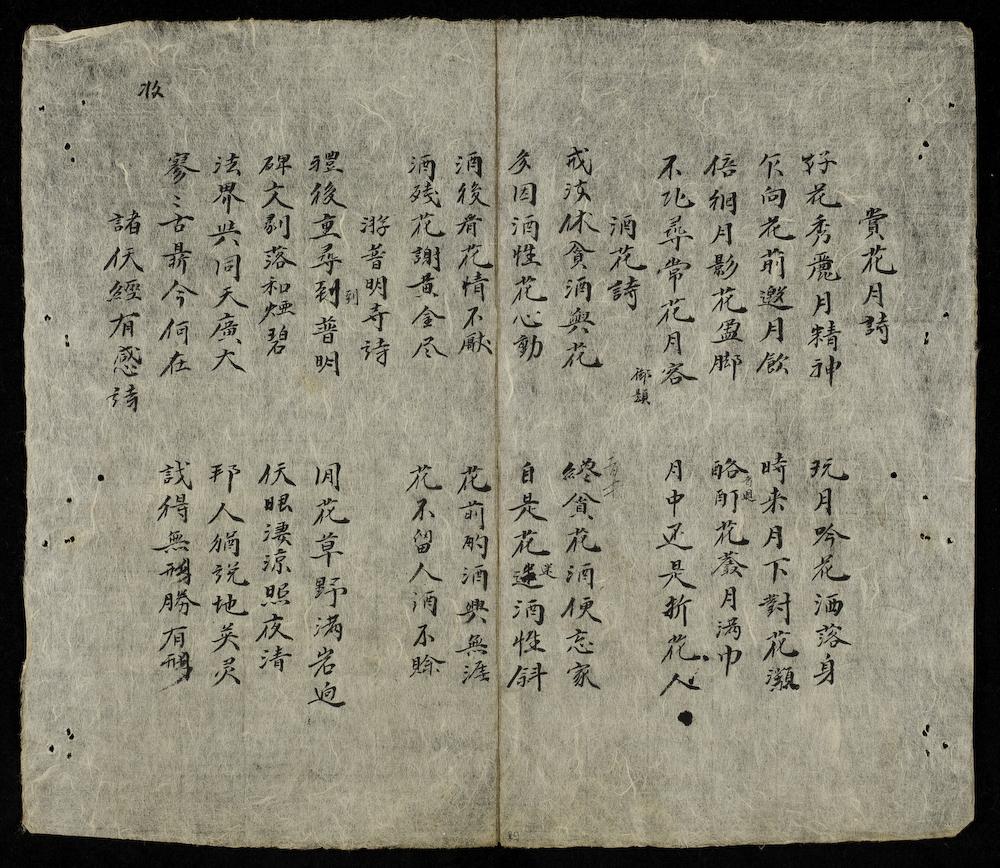 賞花月詩
好花秀麗月精神　玩月吟花洒落身
乍向花前邀月飲　時来月下對花瀕
倍徊月影花盈脚　酩酊花叢月满巾
不比尋常花月容　月中还是折花人
御題
酒花詩
戒汝休貪酒與花　終貪花酒便忘家
多因酒性花心動　自是花迷酒性斜
酒後看花情不厭　花前酌酒興無涯
酒残花謝黄金尽　花不留人酒不賒
游普明寺詩
禮後重尋到普明　閒花草野满岩逈
到
碑文剝落和煙碧　仸眼淒涼照夜清
法界共同天廣大　邦人猶説地英灵
寥〻古鼎今何在　識得無形勝有形
諸仸經有感詩
收